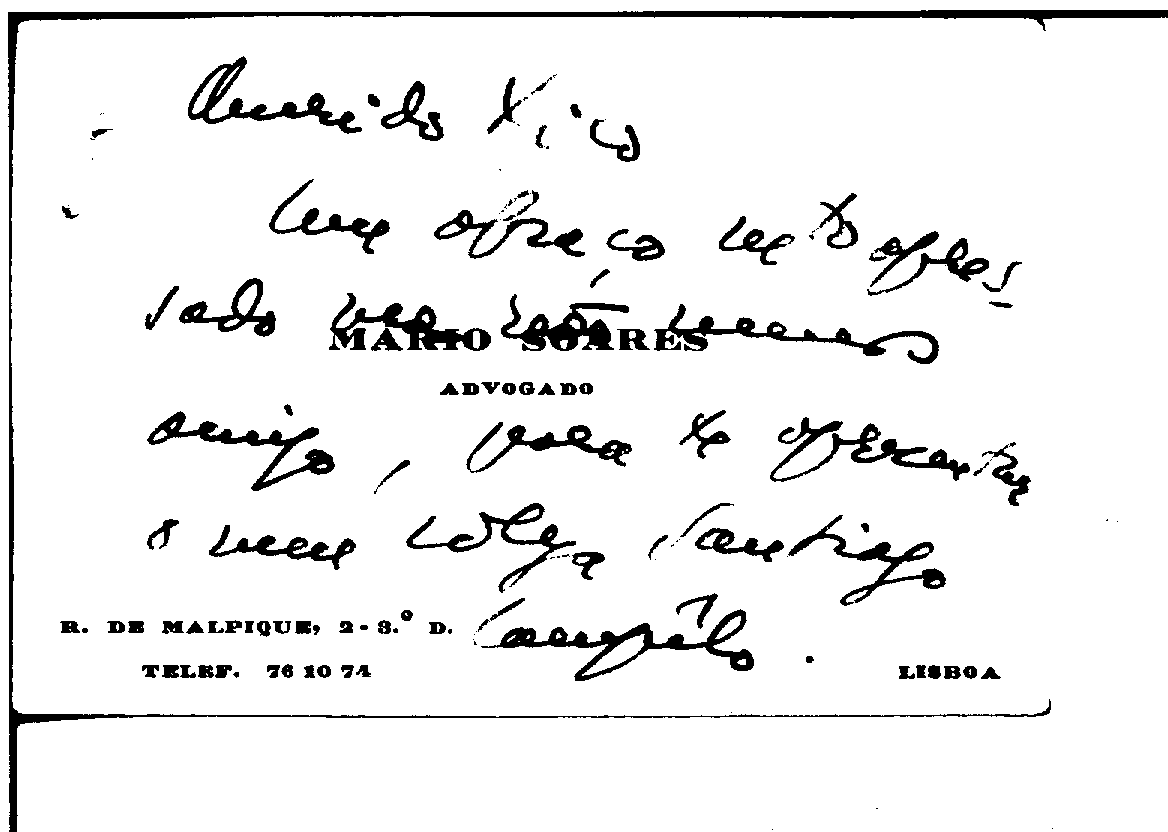 Querido Xico
Um abraço mto apres-
sado
MARIO SOARES
ADVOGADO
amigo, para te apresentar
o meu colega Santiago
R. DE MALPIQUE, 2-3.º D.
TELEF. 76 10 74
LISBOA